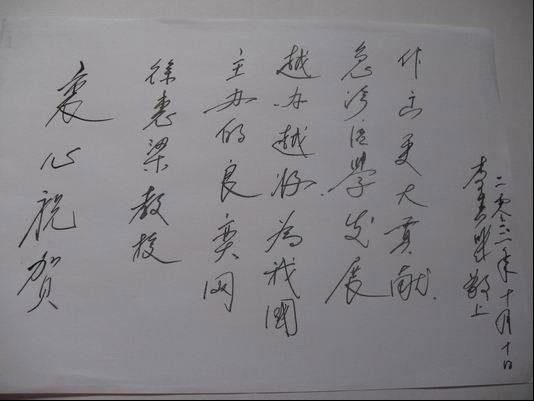 衷心祝贺
徐惠梁教授
主办的良爽网
越办越好.为我國
急诊医学发展
作出更大贡献.
敬上
年十月十日